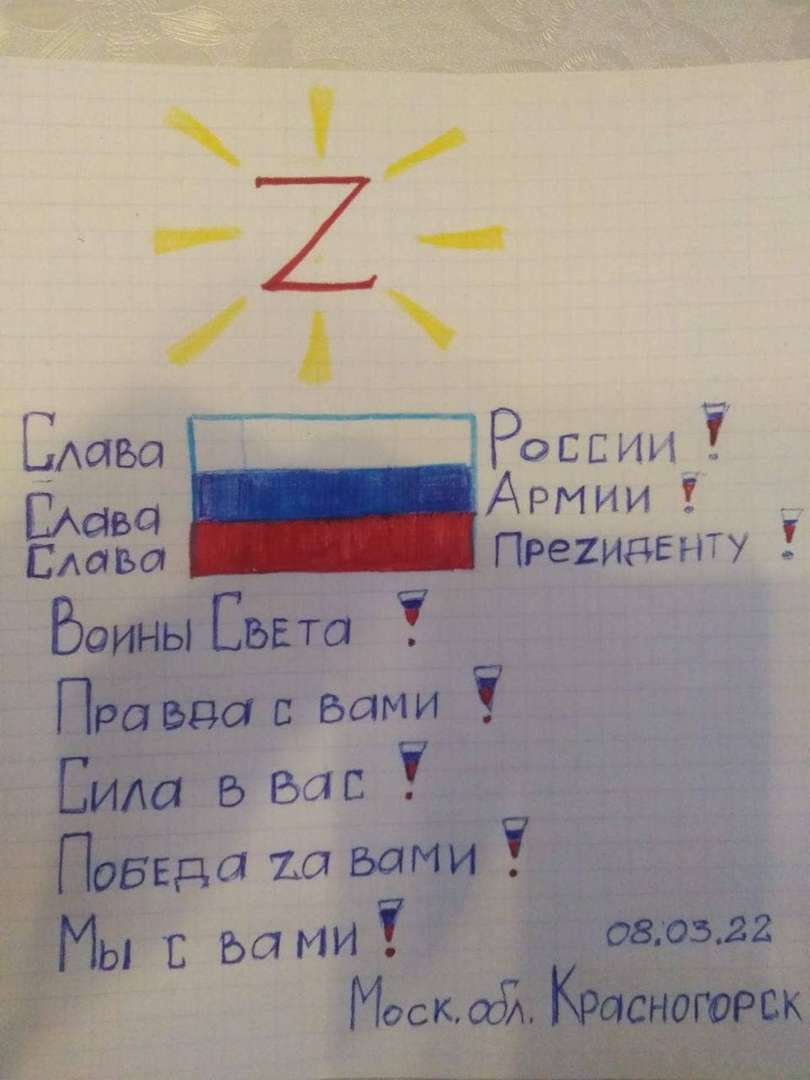 Z
Слава России!
Слава Армии!
Слава Преzиденту!
Воины Света!
Правда с вами!
Сила в вас!
Победа zа вами!
Мы с вами!
08.03.22
Моск. обл. Красногорск